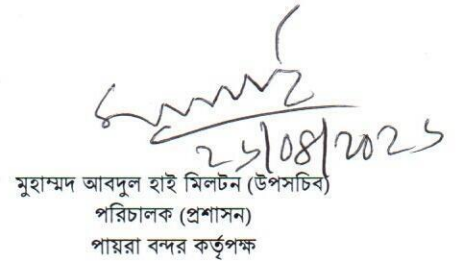 মুহাম্মদ আবদুল হাই মিলটন (উপসচিব)
পরিচালক (প্রশাসন)
পায়রা বন্দর কর্তৃপক্ষ